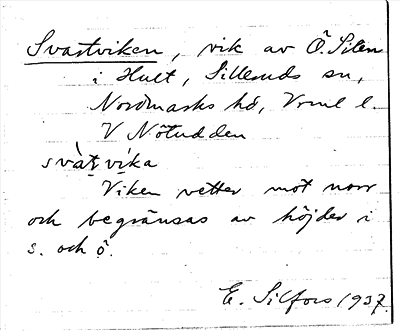 Svartviken, vik av Ö. Silen
i Hult, Silleruds sn,
Nordmarks hd, Vrml l.
V Nötudden
svàt̤vi̤ka
Viken vetter mot norr
och begränsas av höjder i
s. och ö.
E. Silfors 1937.